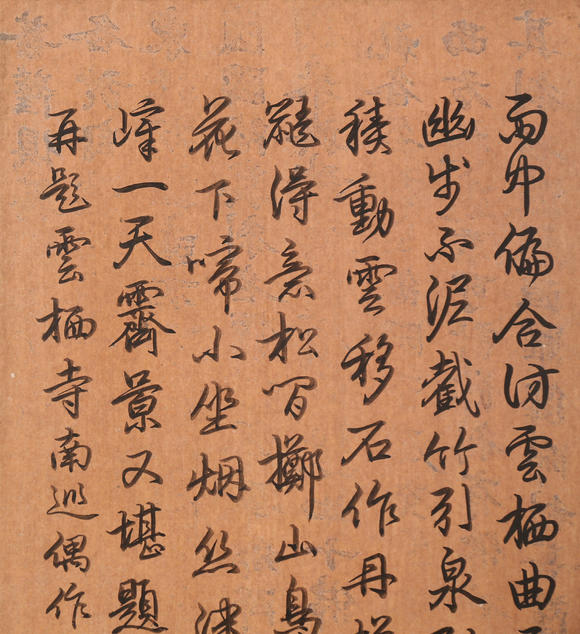 雨中偏合訪雲栖曲
幽步不泥截竹引泉
積動雲移石作丹
得意松間擲山鳥
花下啼小坐烟
峰一天霽景又堪題
再題雲栖寺南巡偶作